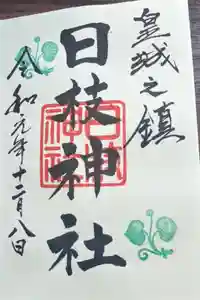 皇城之鎮
日枝神社
令和元年十二月八日